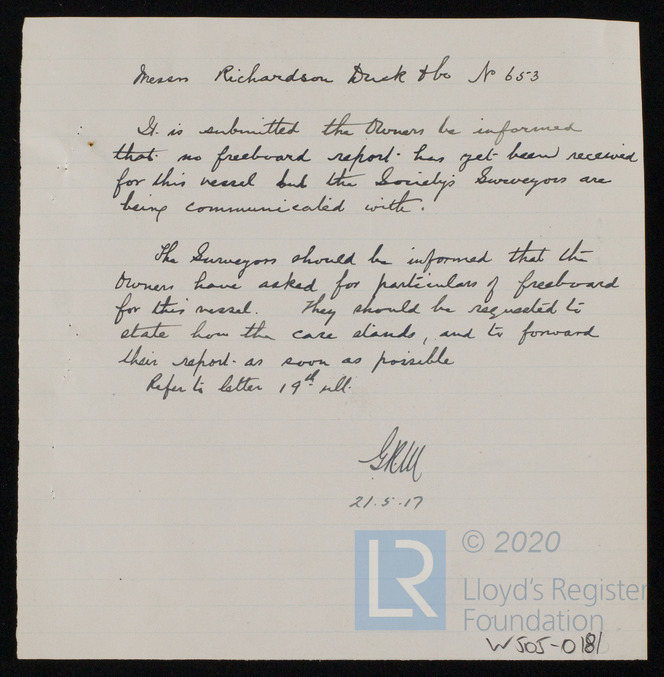 Messrs Richardson Duck & Co No 653
It is submitted the Owners be informed
that no freeboard report has yet been received
for this vessel but the Society's Surveyors are
being communicated with.
The Surveyors should be informed that the
Owners have asked for particulars of freeboard
for this vessel. They should be requested to
state how the case stands, and to forward
their report as soon as possible
Refer to letter 19th ult.
GRM
21.5.17
LR
© 2020
Lloyd's Register
Foundation
W505-0181